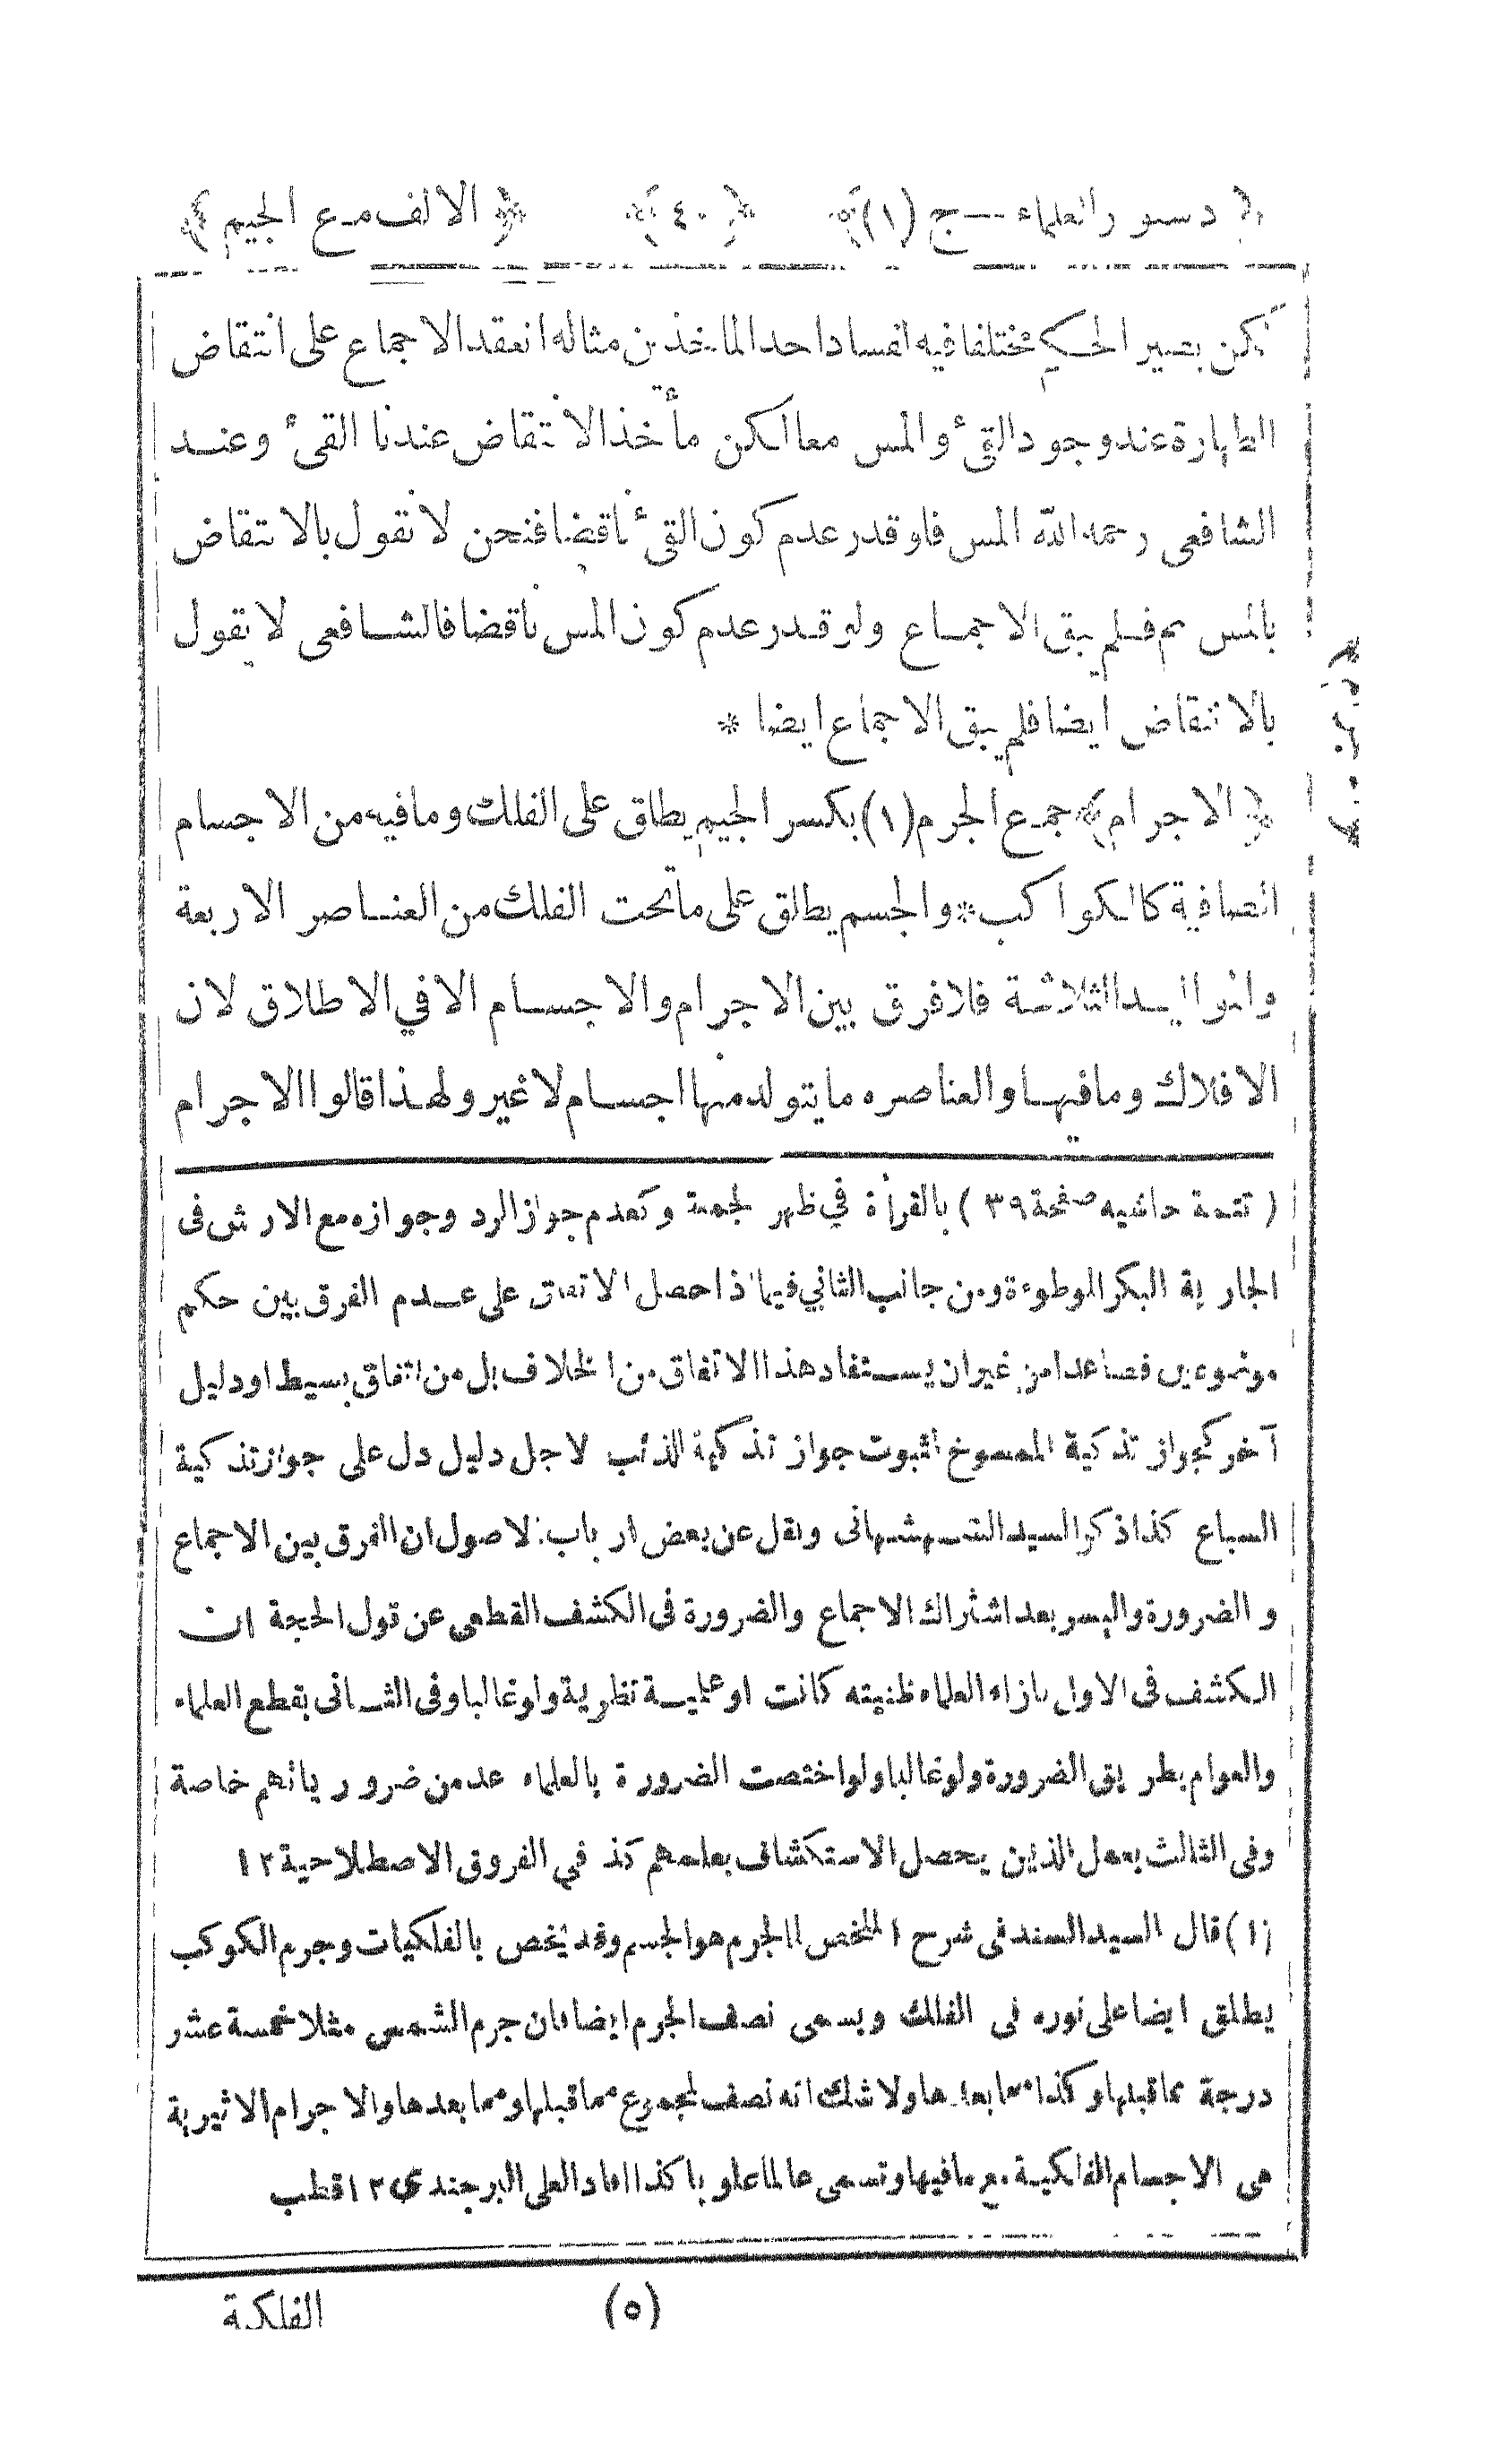 ﴿ دستور العلماء — ج (١) ﴾ ﴿ ٤٠ ﴾ ﴿ الالف مع الجيم ﴾
لكن يصير الحكم مختلفا فيه بفساد احد الماخذين مثاله انعقد الاجماع على انتقاض
الطهارة عند وجود القئ والمس معا لكن مأخذ الانتقاض عندنا القئ وعند
الشافعى رحمه الله المس فلو قدر عدم كون القئ ناقضا فنحن لا نقول بالانتقاض
بالمس ثم فلم يبق الاجماع ولو قدر عدم كون المس ناقضا فالشافعى لا يقول
بالانتقاض ايضا فلم يبق الاجماع ايضا *
﴿ الاجرام ﴾ جمع الجرم (١) بكسر الجيم يطلق على الفلك وما فيه من الاجسام
الصافية كالكواكب * والجسم يطلق على ما تحت الفلك من العناصر الاربعة
والمواليد الثلاثة فلا فرق بين الاجرام والاجسام الا في الاطلاق لان
الافلاك وما فيها والعناصر وما يتولد منها اجسام لا غير ولهذا قالوا الاجرام
( تتمة حاشيه صفحة ٣٩ ) بالقرأة في ظهر لجمعة وكعدم جواز الرد وجوازه مع الارش فى
الجارية البكر الموطوءة ومن جانب الثاني فيما اذا حصل الاتفاق على عدم الفرق بين حكم
موضوعين فصاعدا من غير ان يستفاد هذا الاتفاق من الخلاف بل من اتفاق بسيط او دليل
آخر كجواز تذكية الممسوخ لثبوت جواز تذكية الذئب لاجل دليل دل على جواز تذكية
السباع كذا ذكر السيد الشهشهانى ونقل عن بعض ارباب الاصول ان الفرق بين الاجماع
و الضرورة والسير بعد اشتراك الاجماع والضرورة فى الكشف القطعى عن قول الحجة ان
الكشف فى الاول بازاء العلماء ظنيته كانت او علمية نظرية ولو غالبا وفى الثانى بقطع العلماء
والعوام بطريق الضرورة ولو غالبا ولو اختصت الضرورة بالعلماء عد من ضرورياتهم خاصة
وفى الثالث بعمل الذين يحصل الاستكشاف بعلمهم كذ في الفروق الاصطلاحية ١٢
(١) قال السيد السند فى شرح الملخص الجرم هو الجسم وقد يخص بالفلكيات وجرم الكوكب
يطلق ايضا على نوره فى الفلك ويسمى نصف الجرم ايضا فان جرم الشمس مثلا خمسة عشر
درجة مما قبلها وكذا مما بعدها ولا شك انه نصف لمجموع مما قبلها ومما بعدها والاجرام الاثيرية
هى الاجسام الفلكية مع ما فيها وتسمى عالما علويا كذا افاد العلى البرجندى ١٢ قطب
(٥) الفلكية